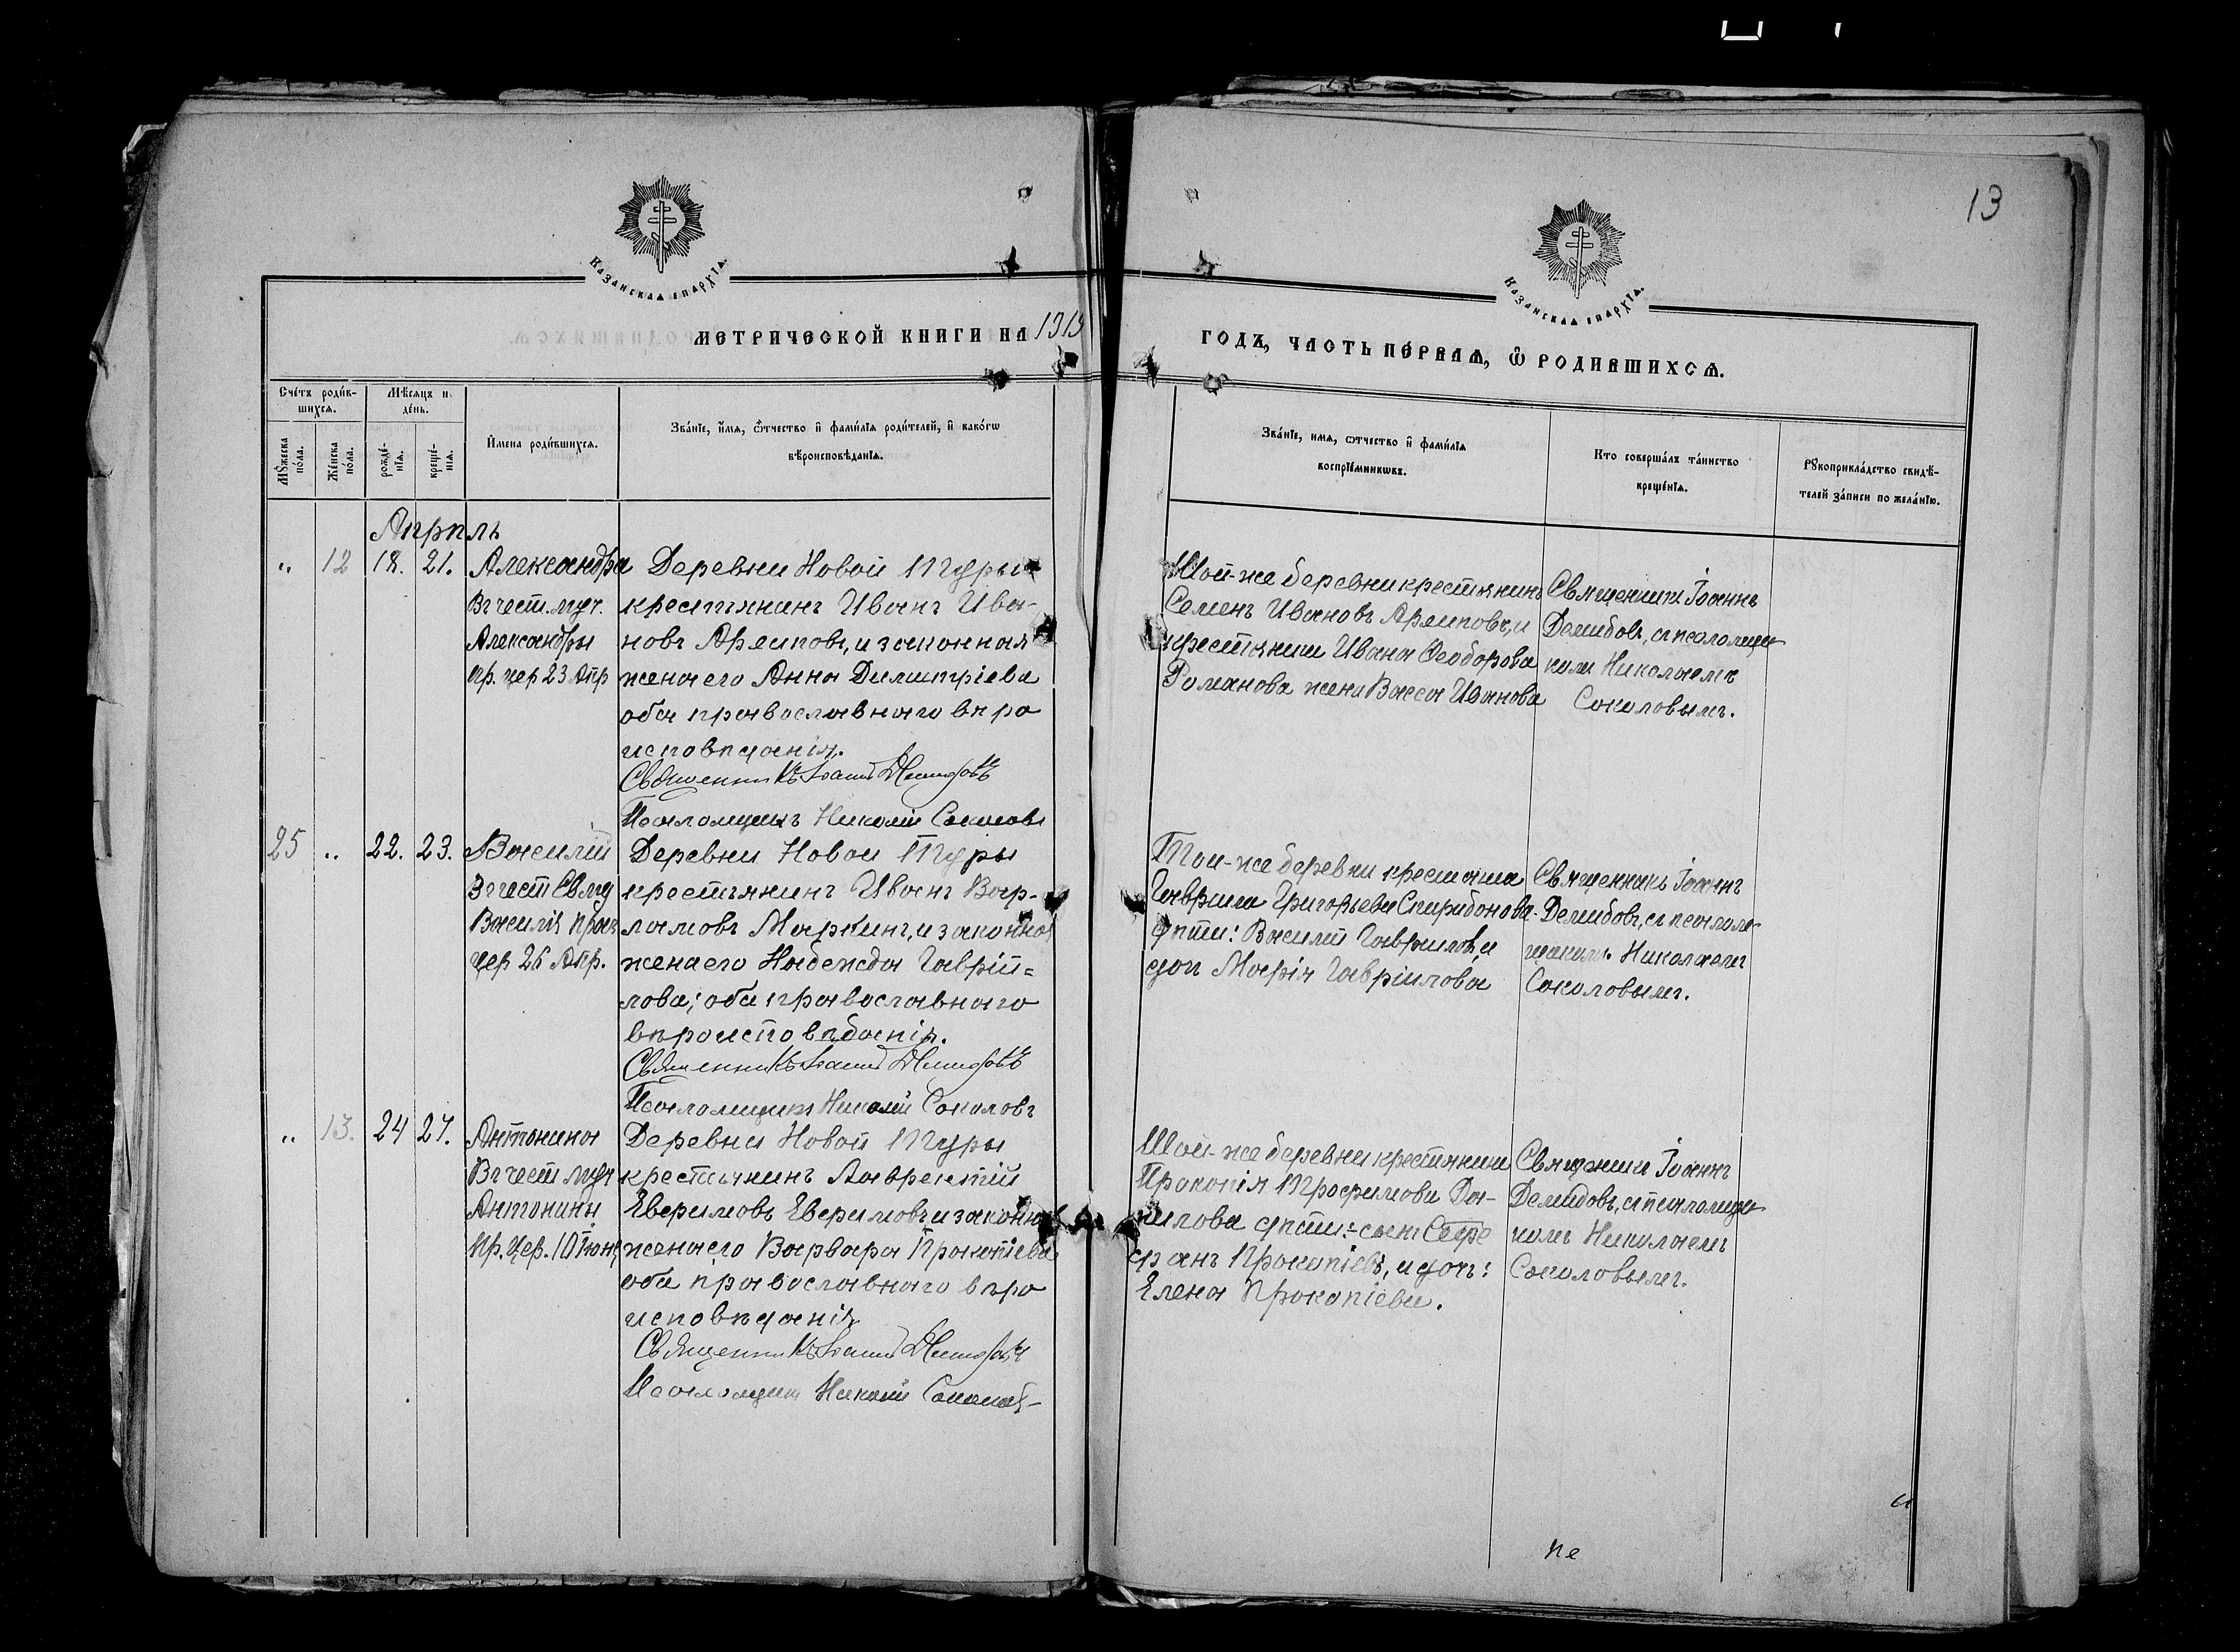 13
Казанская епархїя.
Казанская епархїя.
МЕТРИЧЕСКОЙ КНИГИ НА 1919
ГОДЪ, ЧАСТЬ ПЕ́РВАѦ, Ѡ҆ РОДИВШИХСѦ.
Сче́тъ роди́в-
шихсѧ.
Мѣ́сѧцъ и
де́нь.
Мꙋ́жеска
по́ла.
Же́нска
по́ла.
рожде́-
нїѧ.
креще́-
нїѧ.
И҆мена роди́вшихсѧ.
Зва́нїе, и҆́мѧ, ѻ҆́тчество и҆ фами́лїѧ роди́телей, и҆ како́гѡ
вѣроисповѣ́данїѧ.
Зва́нїе, имѧ, ѻтчество и҆ фами́лїѧ
воспрїе́мникѡвъ.
Кто соверша́лъ та́инство
креще́нїѧ.
Рꙋкоприкла́дство свидѣ́-
телей за́писи по жела́нїю.
Апрѣль
" 12 18. 21. Александра
Въ чест. муч.
Александры
пр. чер 23 Апр
Деревни Новой Туры
крестьянинъ Иванъ Ива-
новъ Архиповъ, и законная
жена его Анна Димитріева
оба православнаго вѣро
исповѣданія.
Священникъ Іоаннъ Демидовъ
Псаломщикъ Николай Соколовъ
Той-же деревни крестьянинъ
Семенъ Ивановъ Архиповъ, и
крестьянина Ивана Феодорова
Романова жена Васса Иванова
Священникъ Іоаннъ
Демидовъ, съ псаломщи-
комъ Николаемъ
Соколовымъ.
25 " 22. 23. Василій
Въ чест Св му
Василія праз
чер 26 Апр.
Деревни Новой Туры
крестьянинъ Иванъ Вар-
ламовъ Маркинъ, и законная
жена его Надежда Гаврій-
лова; оба православнаго
вѣроисповѣданія.
Священникъ Іоаннъ Демидовъ
Псаломщикъ Николай Соколовъ
Той-же деревни крестьянина
Гавриила Григорьева Спиридонова
дѣти: Василій Гавриловъ, и
доч Марія Гавріилова
Священникъ Іоаннъ
Демидовъ, съ псалом-
щикомъ Николаемъ
Соколовымъ.
" 13. 24 27. Антонина
Въ чест муч
Антонины
Пр. Чер. 10 Іюня
Деревни Новой Туры
крестьянинъ Лаврентій
Ефримовъ Ефримовъ, и законная
жена его Варвара Прокопіева
оба православнаго вѣро
исповѣданія
Священникъ Іоаннъ Демидовъ
Псаломщикъ Николай Соколовъ
Той-же деревни крестьянина
Прокопія Трофимова Да-
нилова дѣти:- сынъ Стефе
ф анъ Прокопіевъ, и дочь:
Елена Прокопіева.
Священникъ Іоаннъ
Демидовъ, съ псаломщи-
комъ Николаемъ
Соколовымъ.
не